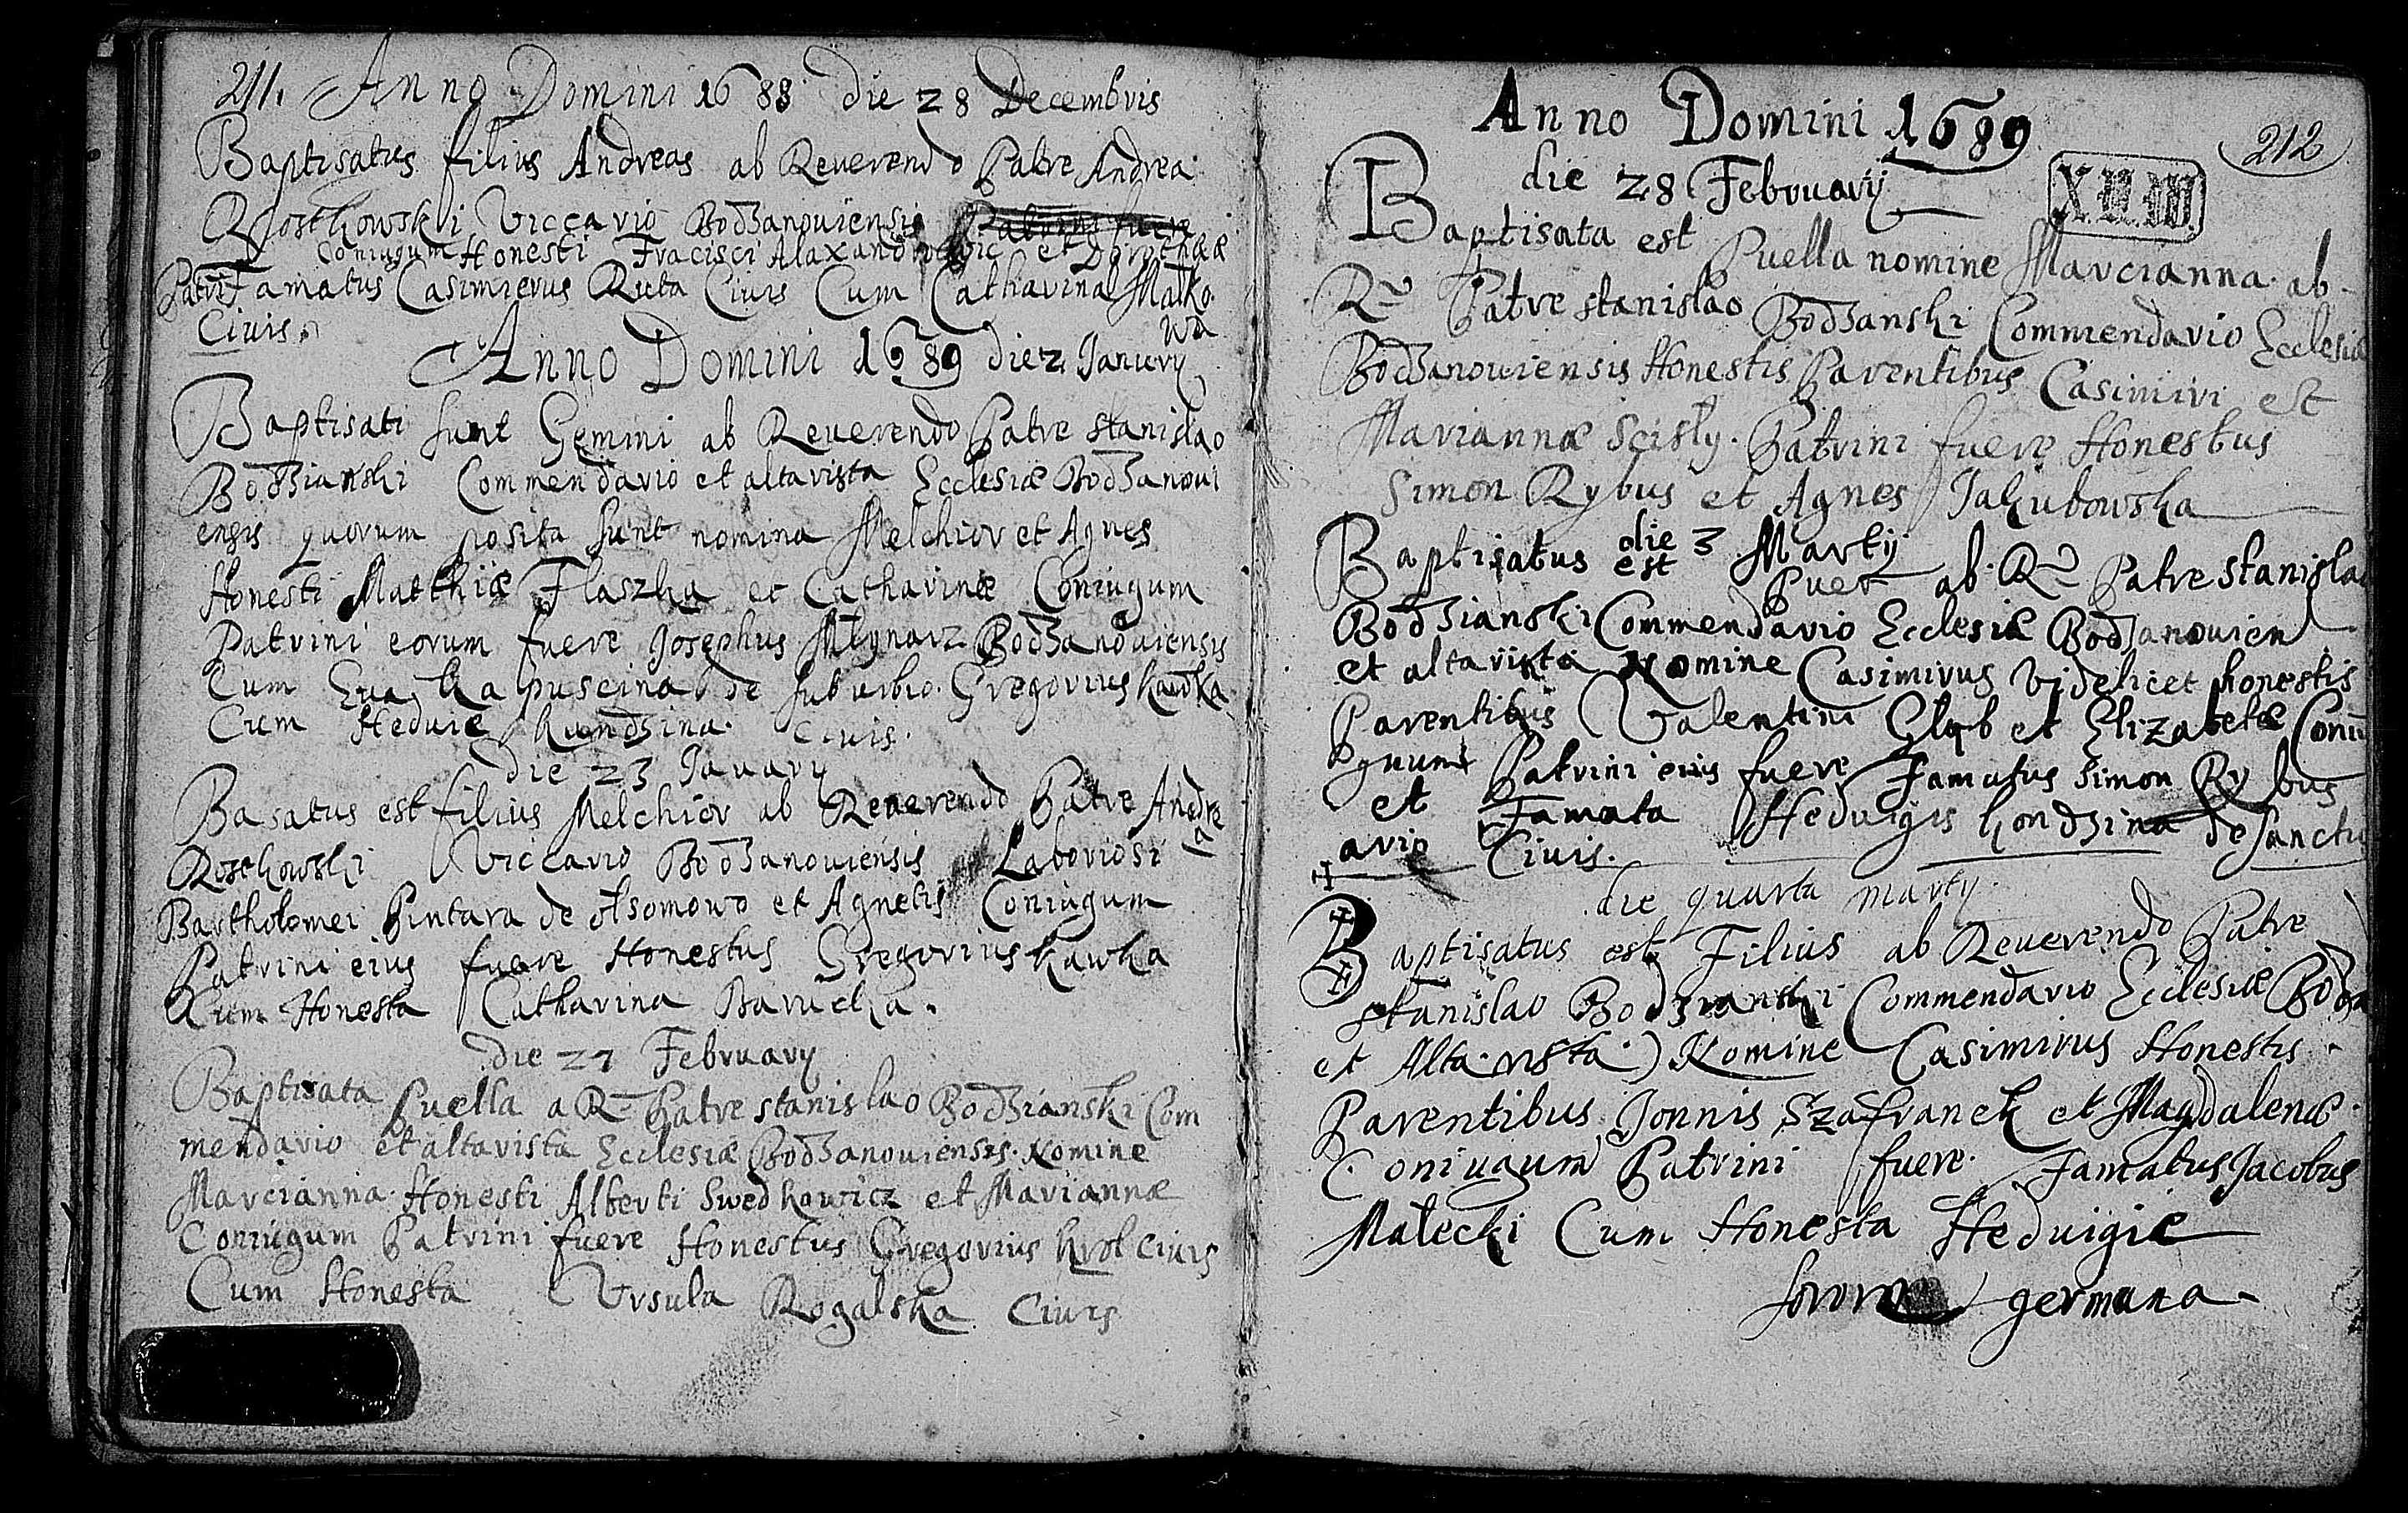 211. Anno Domini 1688 die 28 Decembris
Baptisatus filius Andreas ab Reuerendo Patre Andrea
Rosthowski Viccario Bodzanouiensis Patrini fuere
Coniugum Honesti Fracisci et Dorotheæ
Patri Famatus Casimierus Ruta Ciuis Cum Catharina Malko
wa
Ciuis.
Anno Domini 1689 die 2 Janury
Baptisati sunt Gemini ab Reuerendo Patre stanislao
Bodzianski Commendario et altarista Ecclesiæ Bodzanoui
ensis quorum posita sunt nomina Melchior et Agnes
Honesti Matthiæ Flaszka et Catharinæ Coniugum
Patrini eorum fuere Josephus Mlynarz Bodzanouiensis
Cum Eua Kapuscina de suburbio. Gregorius kawka
Cum Heduie kundzina. Ciuis.
die 23 January
Basatus est filius Melchior ab Reuerendo Patre Andre
a
Rosthowski Viccario Bodzanouiensis Laboriosi
Bartholomei Pintara de et Agnetis Coniugum
Patrini eius fuere Honestus Gregorius kawka
Cum Honesta Catharina Barucha.
die 27 February
Baptisata Puella a R Patre stanislao Bodzianski Com
mendario et altarista Ecclesiæ Bodzanouiensis. Nomine
Marcianna Honesti Alberti Swedkowicz et Mariannæ
Coniugum Patrini fuere Honestus Gregorius krol Ciuis
Cum Honesta Vrsula Rogalska Ciuis
Anno Domini 1689
212
die 28 February
Baptisata est Puella nomine Marcianna ab
R Patre stanislao Bodzanski Commendario Ecclesiæ
Bodzanouiensis Honestis Parentibus Casimiri est
Mariannæ Scisly. Patrini fuere Honestus
Simon Rybus et Agnes Jakubowska
die 3 Martij
Baptisatus est Puer ab R Patre stanislao
Bodzianski Commendario Ecclesiæ Bodzanouien
et altarista Nomine Casimirus Videlicet honestis
Parentibus Valentini Gląb et Elizabetæ Coniu
gnum Patrini eius fuere Famatus Simon Rybus
et Famata Heduigis kondzina de sanctu
ario Ciuis.
die quarta marty.
Baptisatus est Filius ab Reuerendo Patre
stanislao Bodzianski Commendario Ecclesiæ Bodza
et Alta rista) Nomine Casimirus Honestis
Parentibus Jonnis Szafranek et Magdalenæ.
Coniugum Patrini fuere Famatus Jacobus
Malecki Cum Honesta Heduigie
germana